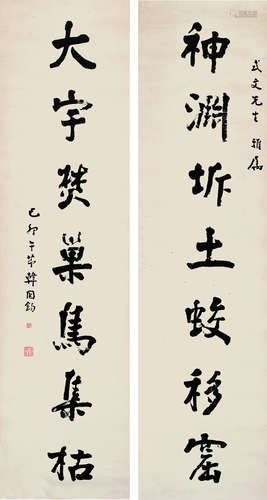 式文先生雅属
神渊坼土蛟移窟
大宇焚巢鸟集枯
己卯午节韩国钧